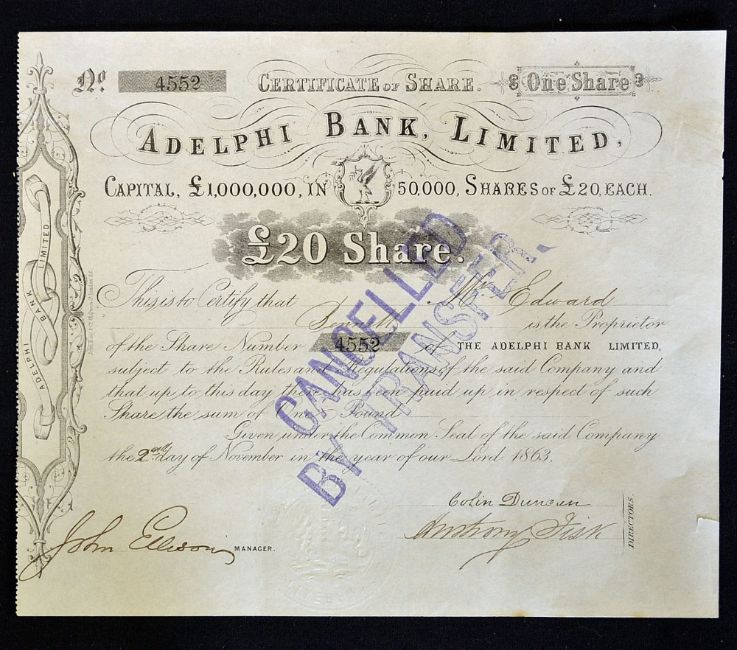 No. 4552 CERTIFICATE OF SHARE. One Share
ADELPHI BANK, LIMITED,
CAPITAL, £1,000,000, IN 50,000, SHARES OF £20, EACH.
£20 Share.
This is to Certify that Mr. Edward
is the Proprietor
of the Share Number 4552 of THE ADELPHI BANK LIMITED,
subject to the Rules and Regulations of the said Company and
that up to this day there has been paid up in respect of such
Share the sum of One Pound
Given under the Common Seal of the said Company
the 2nd day of November in the year of our Lord 1863.
CANCELLED
BY TRANSFER.
Colin Duncan
Anthony Fisk
DIRECTORS
John Ellison MANAGER.
ADELPHI BANK LIMITED